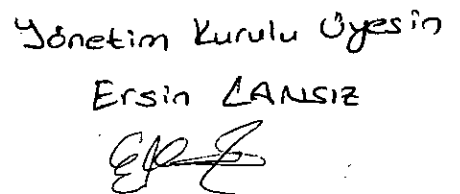 Yönetim Kurulu Üyesin
Ersin CANSIZ